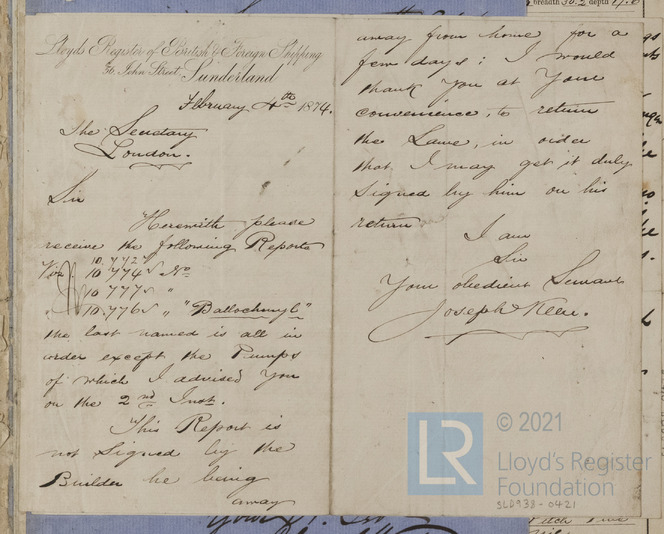 Lloyds Register of British & Foreign Shipping
56, John Street, Sunderland
February 4th 1874.
The Secretary
London.
Sir
Herewith please
receive the following Reports
Viz 10.772
10.774 No
10.777 "
" 10.776 " "Ballochmyle"
the last named is all in
order except the Pumps
of which I advised You
on the 2nd Inst.
This Report is
not Signed by the
Builder he being
away
away from home for a
few days; I would
thank You at Your
convenience, to return
the Same, in order
that I may get it duly
Signed by him on his
return
I am
Sir
Your obedient Servant
Joseph Keen.
© 2021
LR
Lloyd's Register
Foundation
SLD938-0421
breadth 30.2 depth